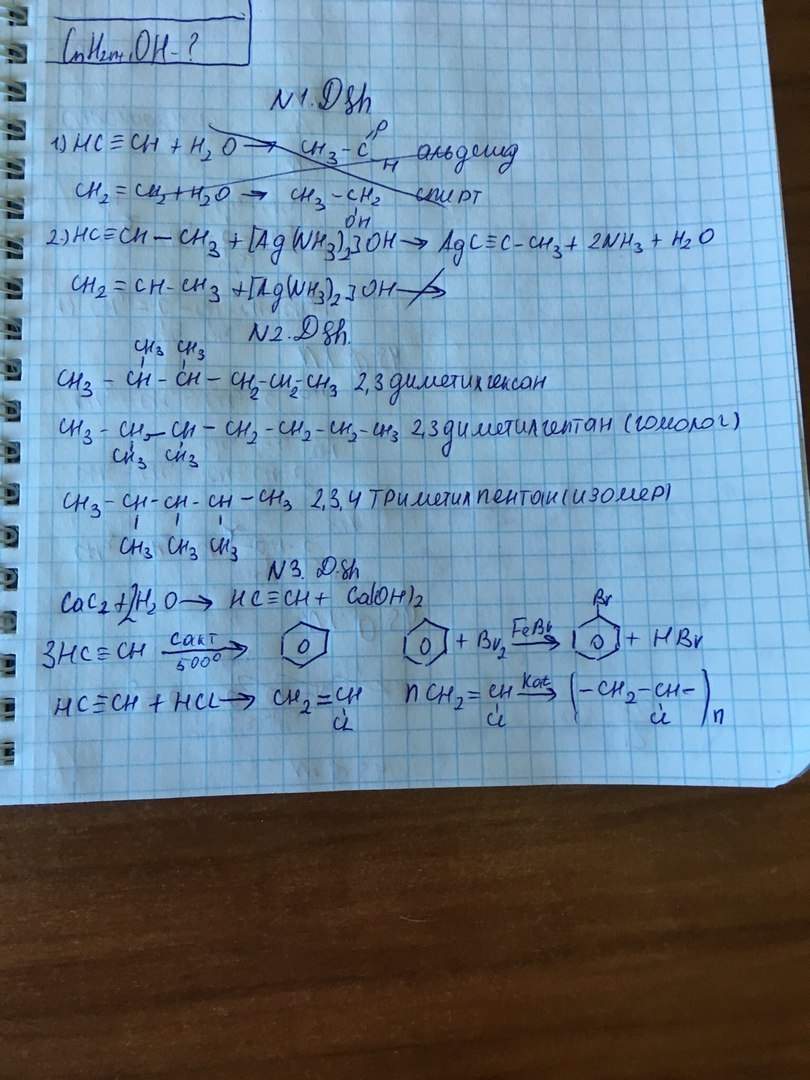 CnH2n+1OH-?
N1. Dgh.
1) HC≡CH + H2O → CH3-C O H альдегид
CH2=CH2+H2O → CH3-CH2 OH спирт
2) HC≡CH-CH3 + [Ag(NH3)2]OH → AgC≡C-CH3 + 2NH3 + H2O
CH2=CH-CH3 + [Ag(NH3)2]OH →
N2. Dgh.
CH3 CH3
CH3 - CH - CH - CH2-CH2-CH3 2,3 диметилгексан
CH3 - CH - CH - CH2 - CH2 - CH2 - CH3 2,3 диметилгептан (гомолог)
CH3 CH3
CH3 - CH - CH - CH - CH3 2,3,4 триметилпентан (изомер)
CH3 CH3 CH3
N3. Dgh
CaC2 + 2H2O → HC≡CH + Ca(OH)2
3HC≡CH Cакт 500° → + Br2 FeBr → Br + HBr
HC≡CH + HCl → CH2=CH Cl nCH2=CH Cl Kat → (-CH2-CH- Cl)n